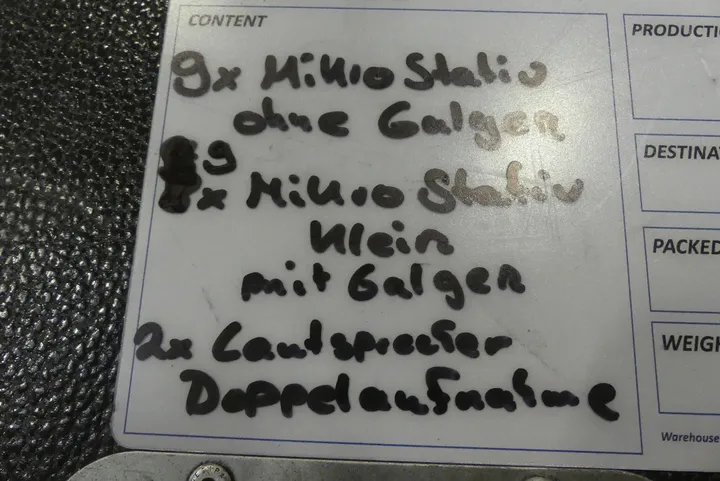 CONTENT
9x Mikro Stativ
ohne Galgen
9
x Mikro Stativ
klein
mit Galgen
2x Lautsprecher
Doppelaufnahme
PRODUCTI
DESTINAT
PACKED
WEIGH
Warehouse